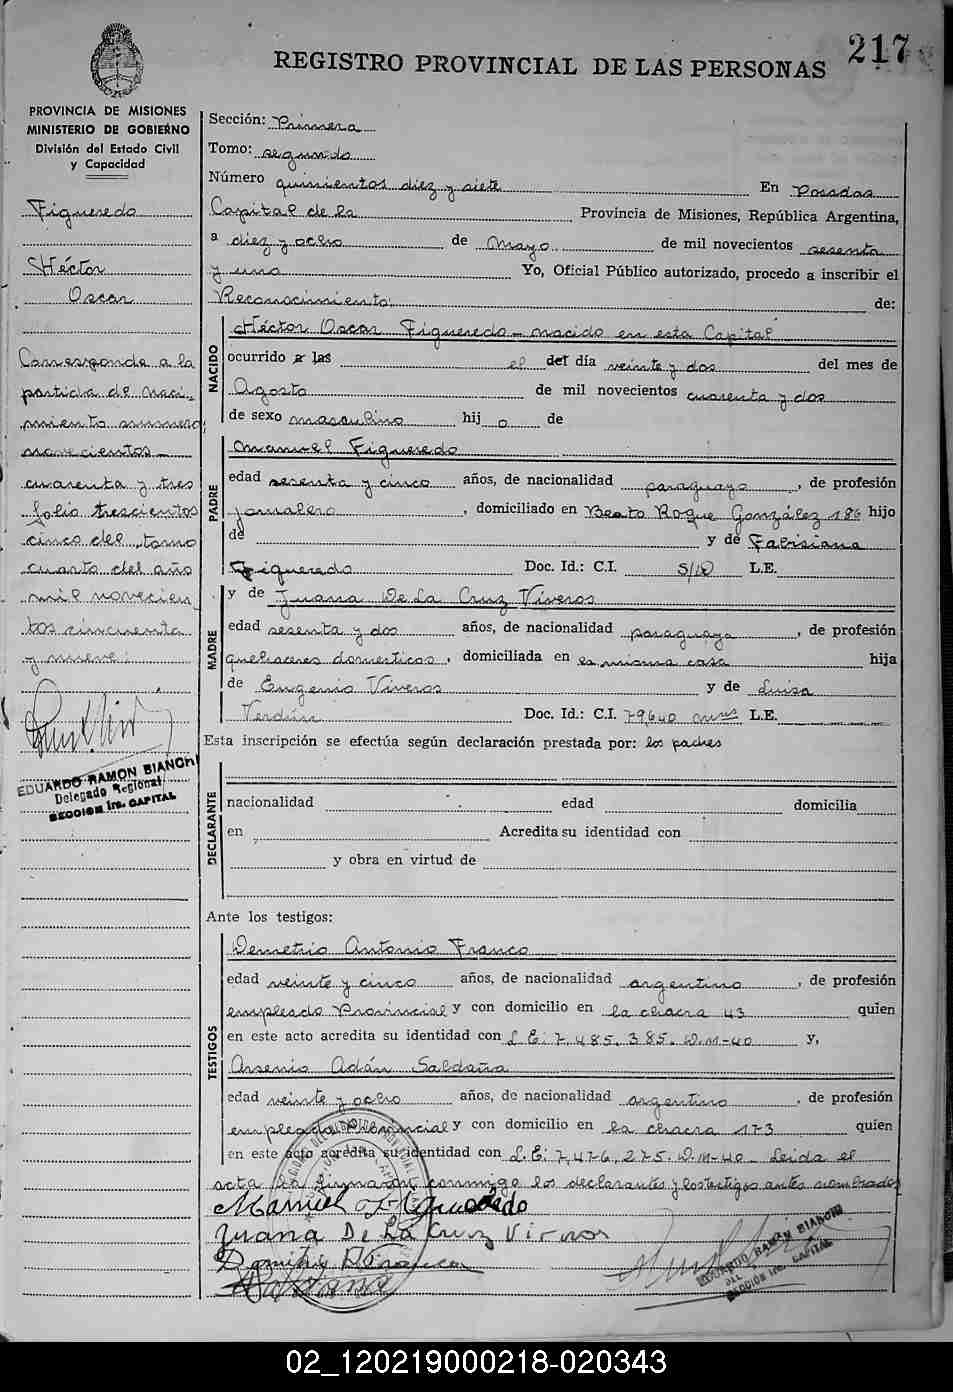 217
REGISTRO PROVINCIAL DE LAS PERSONAS
PROVINCIA DE MISIONES
MINISTERIO DE GOBIERNO
División del Estado Civil
y Capacidad
Figueredo
Héctor
Oscar
Corresponde a la
partida de naci-
miento número
novecientos
cuarenta y tres
folio trescientos
cinco del tomo
cuarto del año
mil novecien
tos cincuenta
y nueve.
EDUARDO RAMON BIANCHI
Delegado Regional
SECCION 1ra. CAPITAL
Sección: Primera
Tomo: segundo
Número quinientos diez y siete En Posadas
Capital de la Provincia de Misiones, República Argentina,
a diez y ocho de Mayo de mil novecientos sesenta
y uno Yo, Oficial Público autorizado, procedo a inscribir el
Reconocimiento de:
NACIDO
Héctor Oscar Figueredo - nacido en esta Capital
ocurrido a las el del día veinte y dos del mes de
Agosto de mil novecientos cuarenta y dos
de sexo masculino hij o de
PADRE
Manuel Figueredo
edad sesenta y cinco años, de nacionalidad paraguayo, de profesión
jornalero, domiciliado en Beato Roque González 186 hijo
de y de Fabisiana
Figueredo Doc. Id.: C.I. S/D L.E.
MADRE
y de Juana De La Cruz Viveros
edad sesenta y dos años, de nacionalidad paraguaya, de profesión
quehaceres domesticos, domiciliada en es misma casa hija
de Eugenio Viveros y de Luisa
Verdún Doc. Id.: C.I. 79,640 mnes L.E.
Esta inscripción se efectúa según declaración prestada por: los padres
DECLARANTE
nacionalidad edad domicilia
en Acredita su identidad con
y obra en virtud de
Ante los testigos:
TESTIGOS
Demetrio Antonio Franco
edad veinte y cinco años, de nacionalidad argentino, de profesión
empleado Provincial y con domicilio en la chacra 43 quien
en este acto acredita su identidad con L.E: 7,485,385. D.M-40 y,
Arsenio Adán Saldaña
edad veinte y ocho años, de nacionalidad argentino, de profesión
empleado Provincial y con domicilio en la chacra 173 quien
en este acto acredita su identidad con L.E: 7,476,275. D.M-40 - Leida el
acta la firman conmigo los declarantes y los testigos antes nombrados
Manuel Figueredo
Juana De La Cruz Viveros
EDUARDO RAMON BIANCHI
SECCION 1ra. CAPITAL
02_120219000218-020343